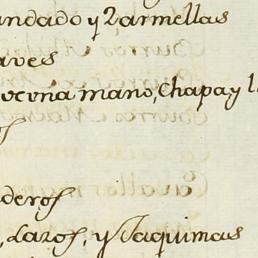 undado y Zarmellas
aves
ucuña mano, Chapa, y l
os
deros
, Lazos, y Jaquimas